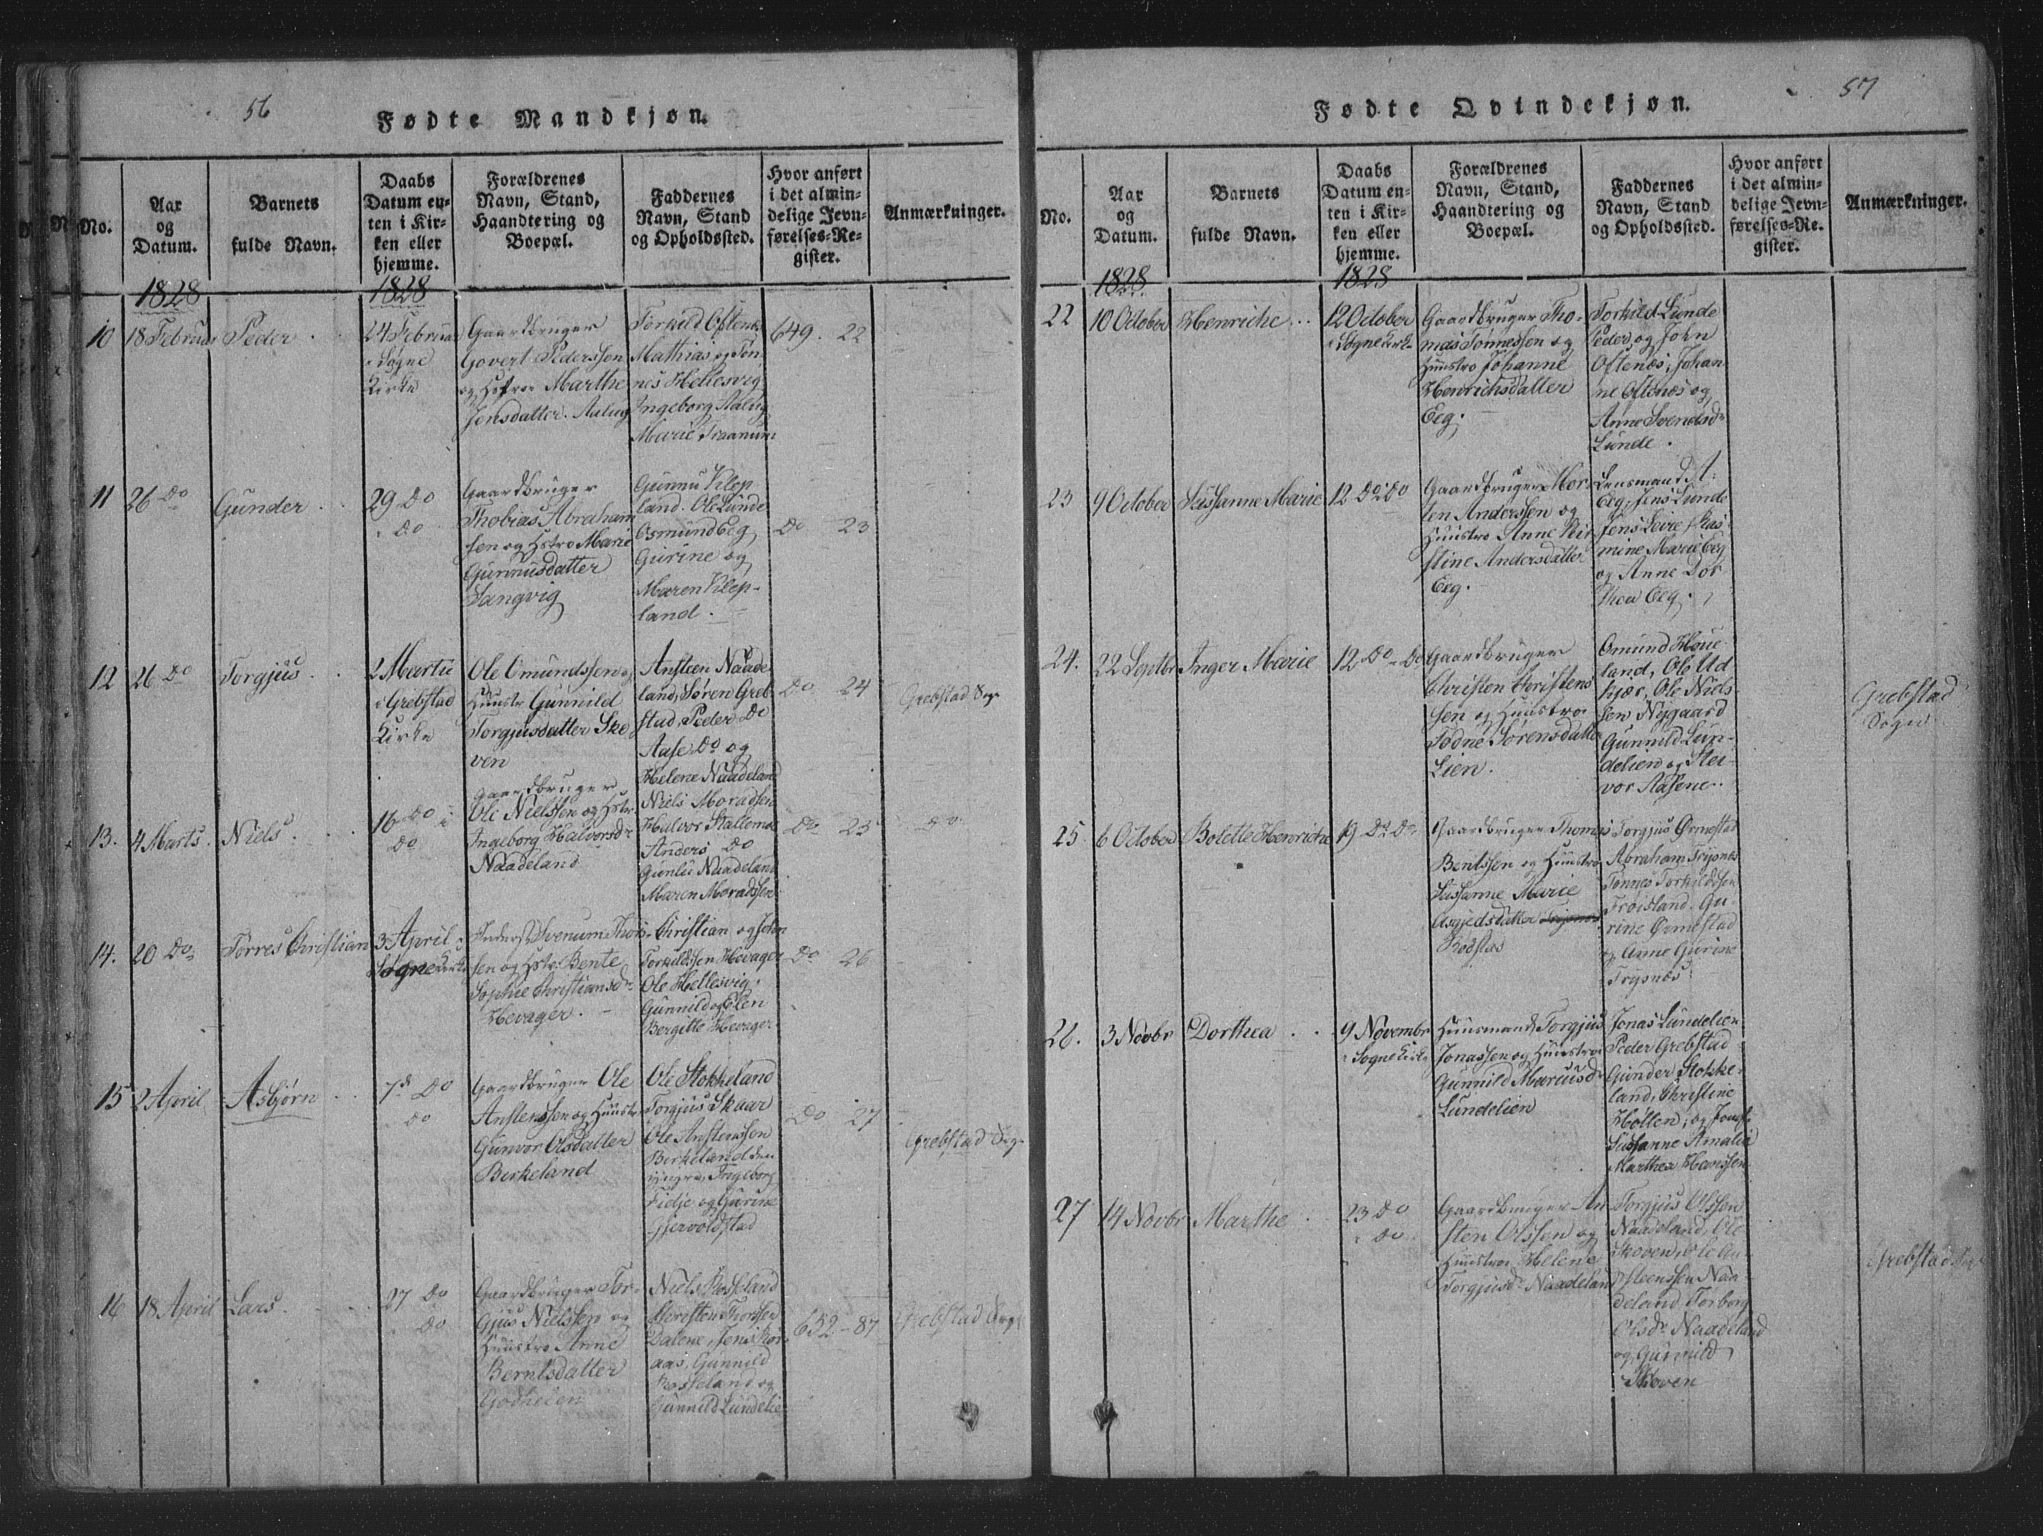 56
Fødte Mandkjøn.
No.
Aar
og
Datum.
Barnets
fulde Navn.
Daabs
Datum en-
ten i Kir-
ken eller
hjemme.
Forældrenes
Navn, Stand,
Haandtering og
Boepæl.
Faddernes
Navn, Stand
og Opholdssted.
Hvor anført
i det almin-
delige Jevn-
førelses-Re-
gister.
Anmærkninger.
1828
1828
10
18 Februar
Peder
24 Februar
i Søgne
Kirke
Gaardbruger
Govert Pederssen
og Hstroe Marthe
Jensdatter
Torkild Oftenæs
Mathias og Tøn-
nes Hellesvig
Ingeborg
Marie Traanum
649. 22
11
26 Do
Gunder
29 Do
Do
Gaardbruger
Thobias Abraham
sen og Hstro Marie
Gunnusdatter
Langvig
Gunnu Klep-
land. Ole Lunde
Osmund Eeg
Gurine og
Maren Klep-
land.
Do 23
12
26 Do
Torgjus
2 Martii
i Grebstad
Kirke
Ole Omundssen og
Huustr Gunnild
Torgjusdatter Ske
ven
Ansteen Naade-
land, Søren Greb-
stad, Peder Do
Aase Do og
Helene Naadeland
Do 24
Grebstad Sogn
13.
4 Marts.
Niels.
16 Do i
Do
Gaardbruger
Ole Nielssen og Hstr
Ingeborg Halvorsdr
Naadeland
Niels Moradsen
Halvor Stallemo
Anders Do
Gunlu Naadeland
Maren Moradssen
Do 25
Do
14.
20 Do
Torres Christian
3 April i
Søgne Kirke
sen og Hstr Bente
Sophie Christiansdr
Hevager.
Christian og John
Torkildssen Hevager
Ole Hellesvig,
Gunnild og Elen
Bergitte Hevager
Do 26
15
2 April
Asbjørn
7de Do
Do
Gaardbruger Ole
Anstenssen og Huustr
Gunvor Olsdatter
Birkeland
Ole Stokkeland
Torgjus Skaar
Ole Anstenssen
Birkeland den
yngre, Ingeborg
Fidje og Gurine
Gjervoldstad
Do 27
Grebstad Sogn
16
18 April
Lars.
27 Do
Do
Gaardbruger Tor-
gjus Nielssen og
Huustro Anne
Berntsdatter
Niels Rosseland
Christen Thorssen
Dalene, Jens Kør-
aas, Gunnild
Rosseland og
Gunnild Lundelie
652 - 87
Grebstad Sogn
57
Fødte Qvindekjøn.
No.
Aar
og
Datum.
Barnets
fulde Navn.
Daabs
Datum en-
ten i Kir-
ken eller
hjemme.
Forældrenes
Navn, Stand,
Haandtering og
Boepæl.
Faddernes
Navn, Stand
og Opholdssted.
Hvor anført
i det almin-
delige Jevn-
førelses-Re-
gister.
Anmærkninger.
1828.
1828
22
10 October
Henriche
12 October
i Søgne Kirke
Gaardbruger Tho-
mas Tønnessen og
Huustro Johanne
Henrichsdatter
Eeg.
Torkild Lunde
Peder og John
Oftenæs, Johan-
ne Oftenæs og
Anne Svendsdr
Lunde.
23
9 October
Sussanne Marie
12 Do Do
Gaardbruger Mor-
ten Anderssen og
Huustro Anne Kir-
stine Andersdatter
Eeg.
Lensmand A.
Eeg, Jens Lunde
Jens Leire, Ras-
mine Marie Eeg
og Anne Dor-
thea Eeg.
24.
22 Septbr
Inger Marie
12 Do Do
Gaardbruger
Christen Christens
sen og Huustroe
Todne Sørensdatter
Lien.
Omund Houe
land, Ole Ud
kjær, Ole Niels-
sen Nygaard
Gunnild Lun-
delien og Stei-
vor Aasene.
Grebstad
Sogn
25
6 October
Bolette Henriche
19 Do Do
Gaardbruger Thomas
Bentssen og Huustro
Sussanne Marie
Asgjedsdatter
Rodstas
Torgjus Ormestad
Abraham Trysnes
Tønnes Torkildssen
Troisland, Gu-
rine Ormestad
og Anne Gurine
Trysnæs.
26.
3 Novbr
Dorthea
9 Novembr
i Søgne Kirke
Huusmand Torgjus
Jonassen og Huustroe
Gunnild Mariusdr
Lundelien
Jonas Lundelien
Peder Grebstad
Gunder Stokke-
land, Christine
Holten, og Jomf.
Sussanne Amalia
Marthea Hanssen
27
14 Novbr
Marthe
23 Do
Do
Gaardbruger An
sten Olssen og
Huustroe Helene
Torgjusdr Naadeland
Torgjus Olssen
Naadeland, Ole
Skoven, Ole An-
steenssen Naa-
deland, Torborg
Olsdr Naadeland
og Gunnild
Skoven
Grebstad Sogn